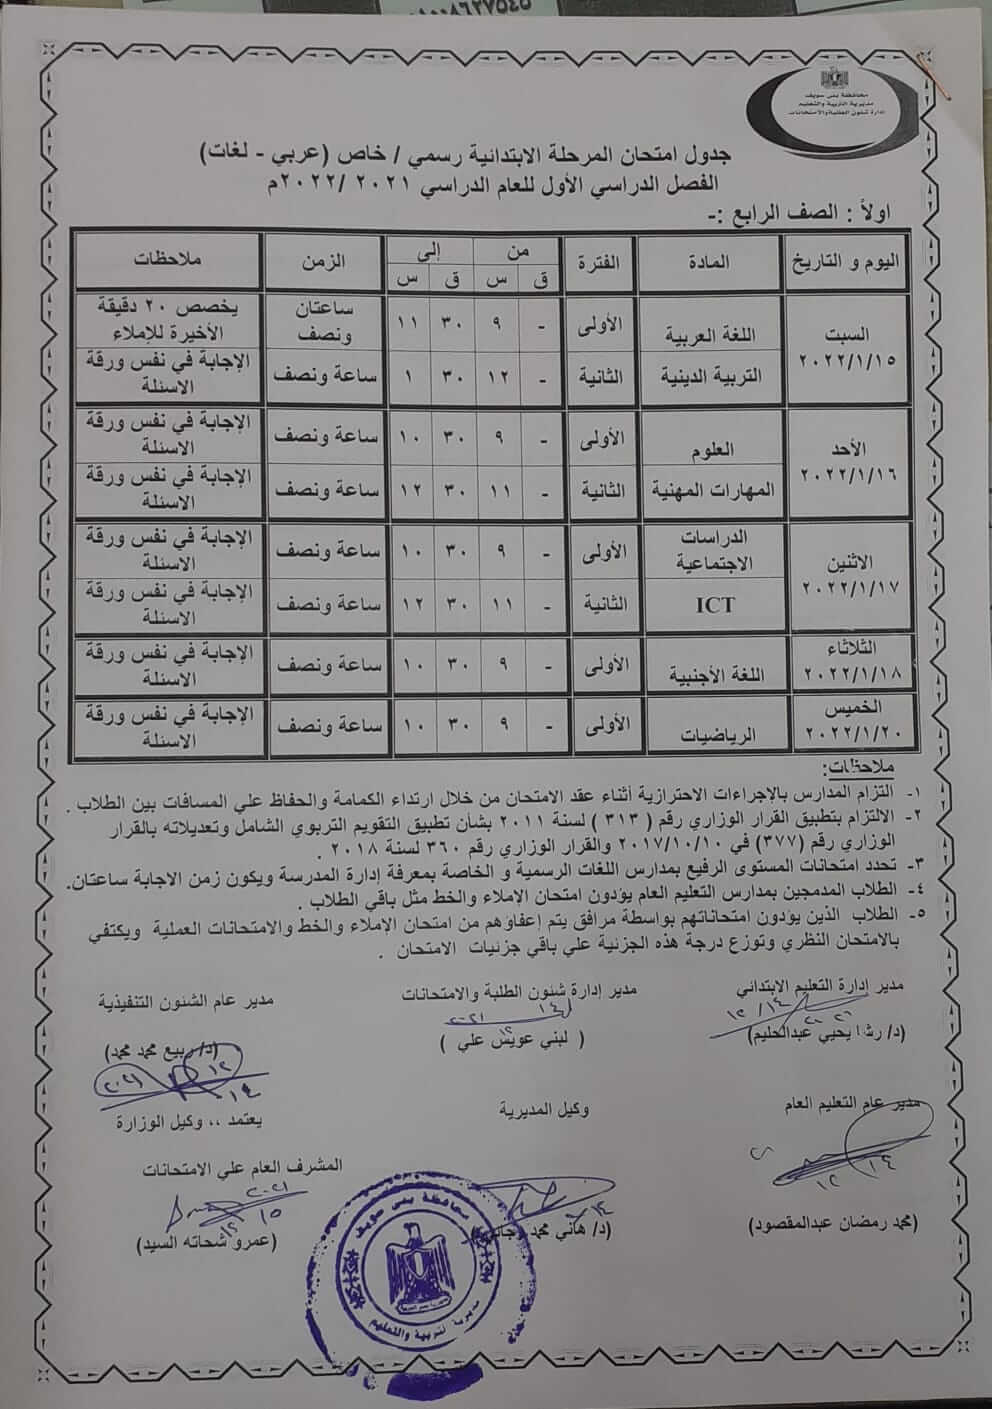 ٠٠٨٦٢٧٥٤٥
محافظة بنى سويف
مديرية التربية والتعليم
ادارة شئون الطلبة والامتحانات
جدول امتحان المرحلة الابتدائية رسمي / خاص (عربي - لغات)
الفصل الدراسي الأول للعام الدراسي ٢٠٢١ /٢٠٢٢م
اولاً : الصف الرابع :-
اليوم و التاريخ المادة الفترة من إلي الزمن ملاحظات
ق س ق س
السبت ٢٠٢٢/١/١٥ اللغة العربية الأولى - ٩ ٣٠ ١١ ساعتان ونصف يخصص ٢٠ دقيقة الأخيرة للإملاء
التربية الدينية الثانية - ١٢ ٣٠ ١ ساعة ونصف الإجابة في نفس ورقة الاسئلة
الأحد ٢٠٢٢/١/١٦ العلوم الأولى - ٩ ٣٠ ١٠ ساعة ونصف الإجابة في نفس ورقة الاسئلة
المهارات المهنية الثانية - ١١ ٣٠ ١٢ ساعة ونصف الإجابة في نفس ورقة الاسئلة
الاثنين ٢٠٢٢/١/١٧ الدراسات الاجتماعية الأولى - ٩ ٣٠ ١٠ ساعة ونصف الإجابة في نفس ورقة الاسئلة
ICT الثانية - ١١ ٣٠ ١٢ ساعة ونصف الإجابة في نفس ورقة الاسئلة
الثلاثاء ٢٠٢٢/١/١٨ اللغة الأجنبية الأولى - ٩ ٣٠ ١٠ ساعة ونصف الإجابة في نفس ورقة الاسئلة
الخميس ٢٠٢٢/١/٢٠ الرياضيات الأولى - ٩ ٣٠ ١٠ ساعة ونصف الإجابة في نفس ورقة الاسئلة
ملاحظات:
١- التزام المدارس بالإجراءات الاحترازية أثناء عقد الامتحان من خلال ارتداء الكمامة والحفاظ علي المسافات بين الطلاب .
٢- الالتزام بتطبيق القرار الوزاري رقم ( ٣١٣ ) لسنة ٢٠١١ بشأن تطبيق التقويم التربوي الشامل وتعديلاته بالقرار
الوزاري رقم (٣٧٧) في ٢٠١٧/١٠/١٠ والقرار الوزاري رقم ٣٦٠ لسنة ٢٠١٨ .
٣- تحدد امتحانات المستوى الرفيع بمدارس اللغات الرسمية و الخاصة بمعرفة إدارة المدرسة ويكون زمن الاجابة ساعتان.
٤- الطلاب المدمجين بمدارس التعليم العام يؤدون امتحان الإملاء والخط مثل باقي الطلاب .
٥- الطلاب الذين يؤدون امتحاناتهم بواسطة مرافق يتم إعفاؤهم من امتحان الإملاء والخط والامتحانات العملية ويكتفي
بالامتحان النظري وتوزع درجة هذه الجزئية علي باقي جزئيات الامتحان .
مدير إدارة التعليم الابتدائي مدير إدارة شئون الطلبة والامتحانات مدير عام الشئون التنفيذية
(د/ رشا يحيي عبدالحليم) ( لبني عويس علي ) (د/ ربيع محمد محمد)
مدير عام التعليم العام وكيل المديرية يعتمد ،، وكيل الوزارة
المشرف العام علي الامتحانات
(محمد رمضان عبدالمقصود) (د/ هاني محمد (عمرو شحاته السيد)
محافظة بنى سويف
مديرية التربية والتعليم